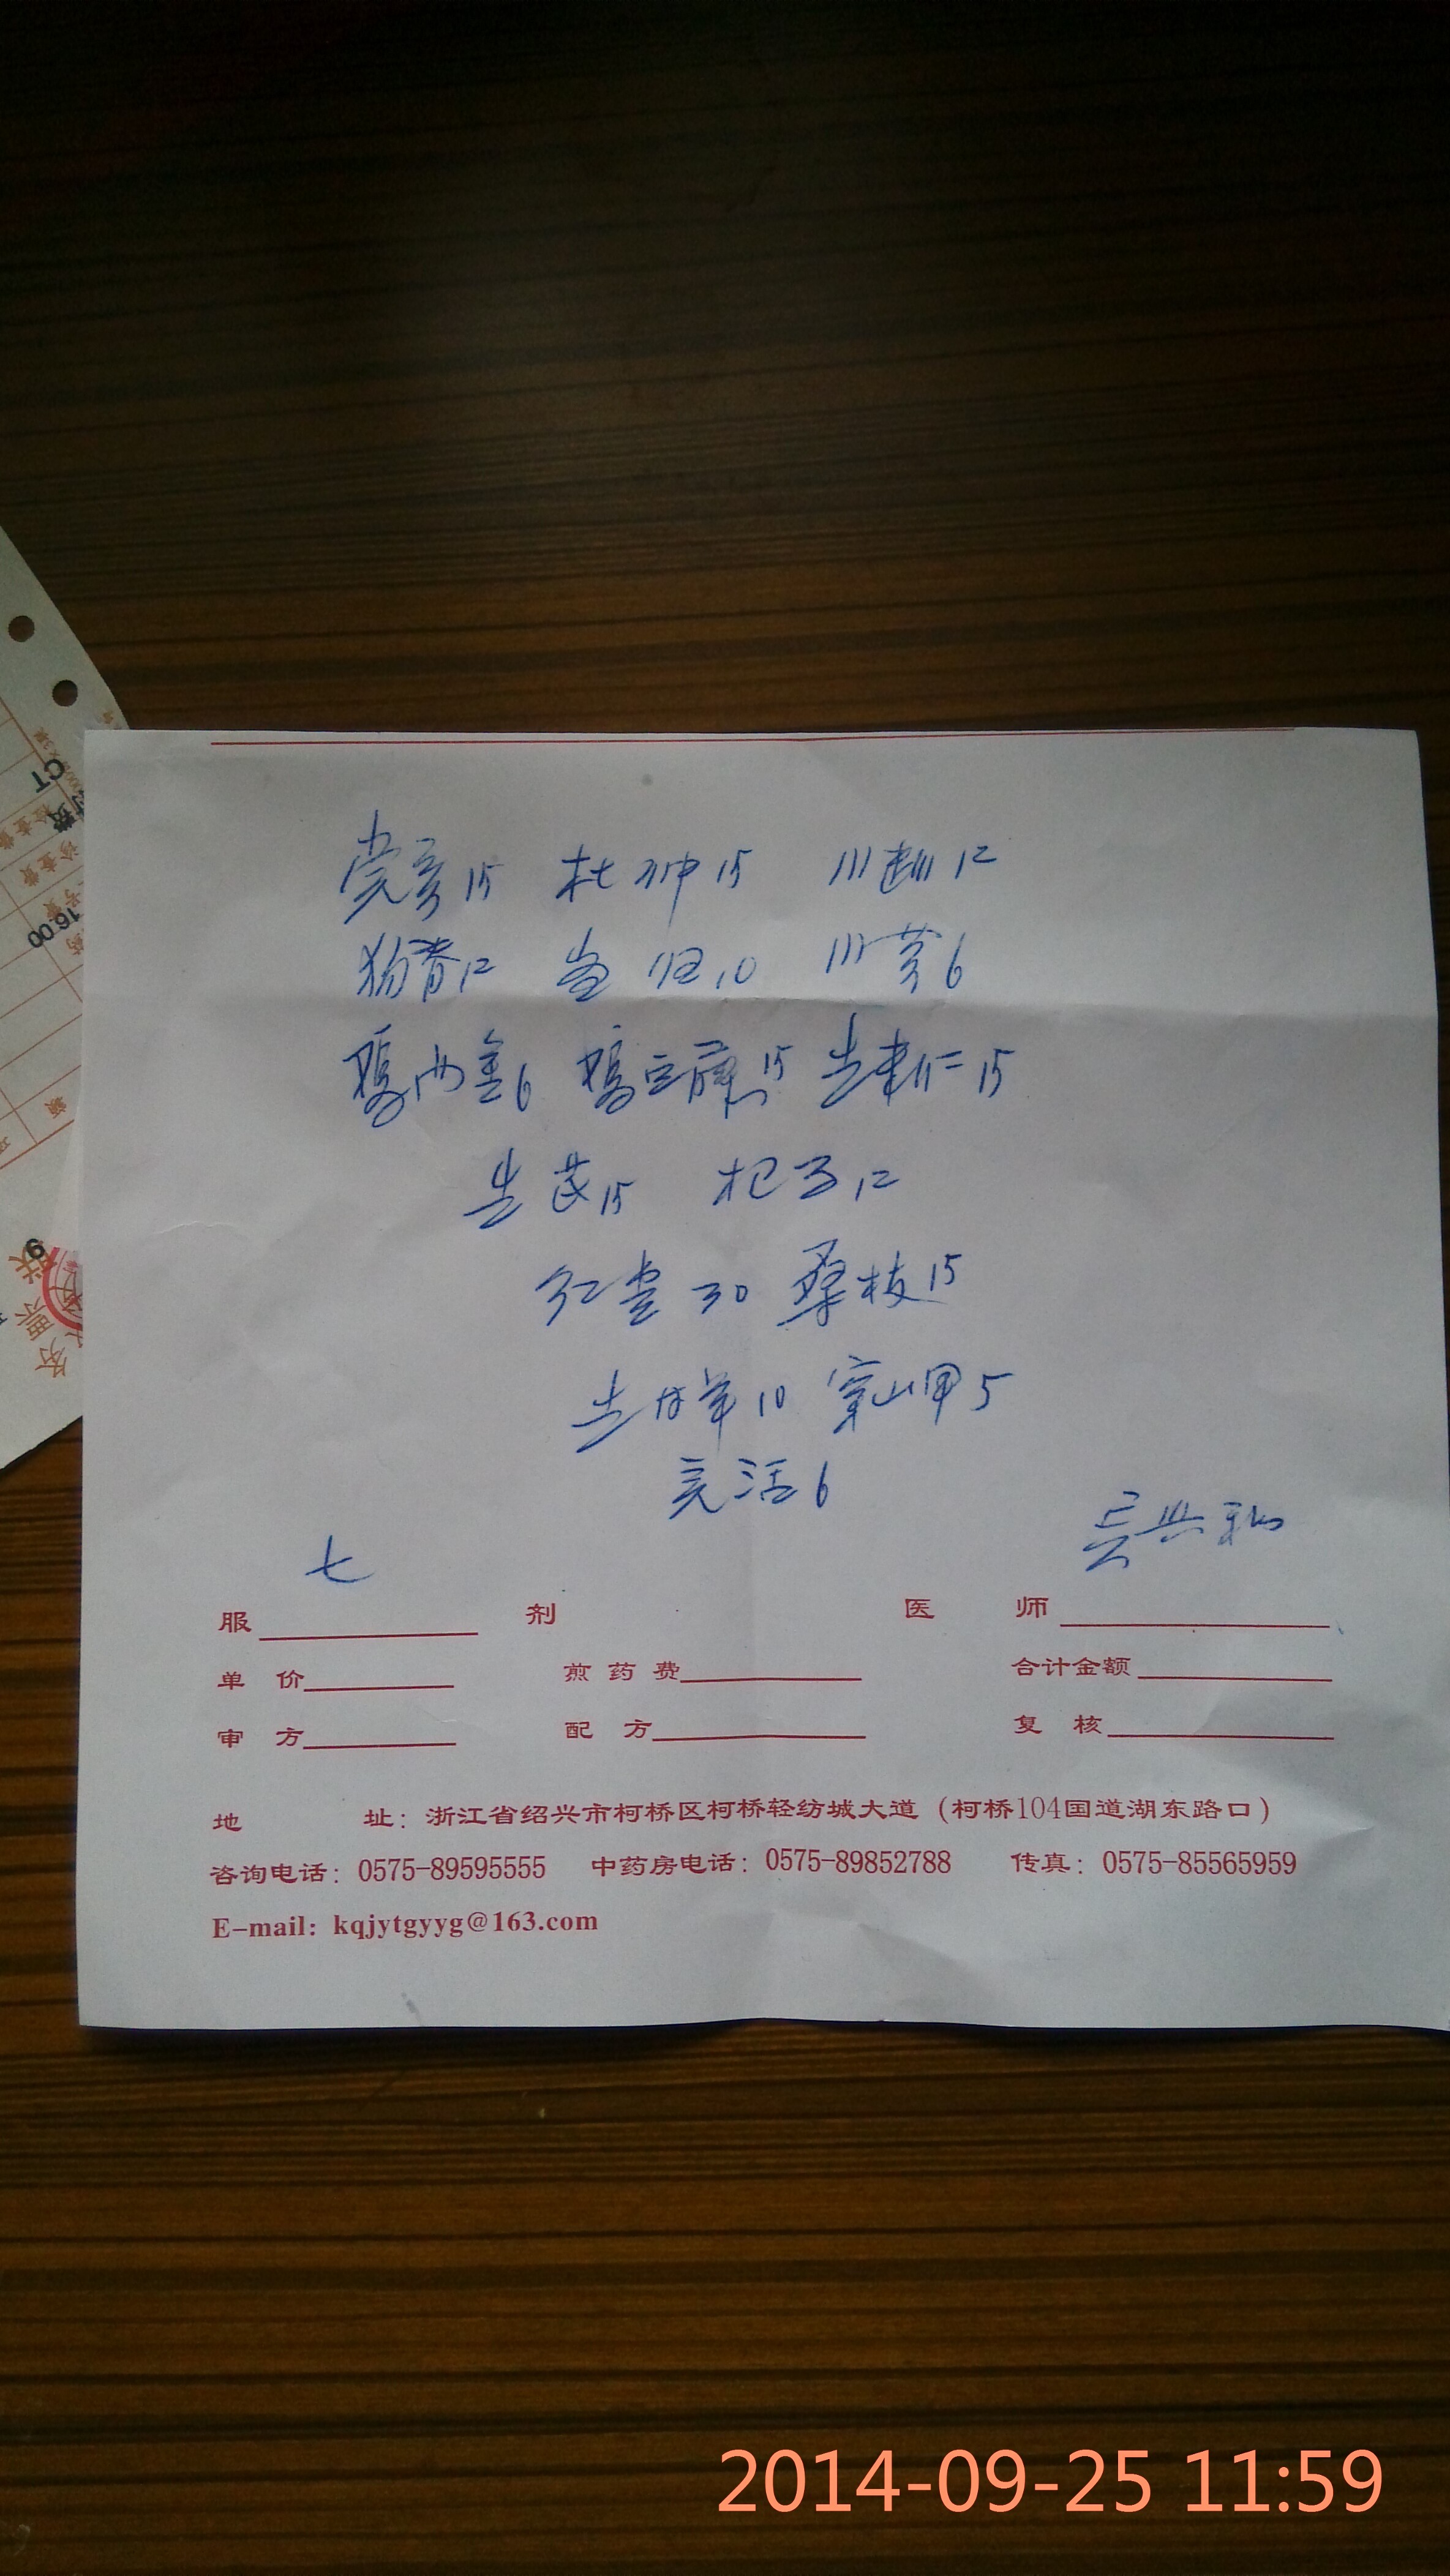 党参15 杜仲15 川断12
狗脊12 当归10 川芎6
鸡内金6 15 生 仁15
生芪15 杞子12
红 30 桑枝15
10 穿山甲5
羌活6
七
吴兴
服 剂 医 师
单 价 煎 药 费 合计金额
审 方 配 方 复 核
地 址：浙江省绍兴市柯桥区柯桥轻纺城大道（柯桥104国道湖东路口）
咨询电话：0575-89595555 中药房电话：0575-89852788 传真：0575-85565959
E-mail：kqjytgyyg@163.com
CT
16.00
2014-09-25 11:59